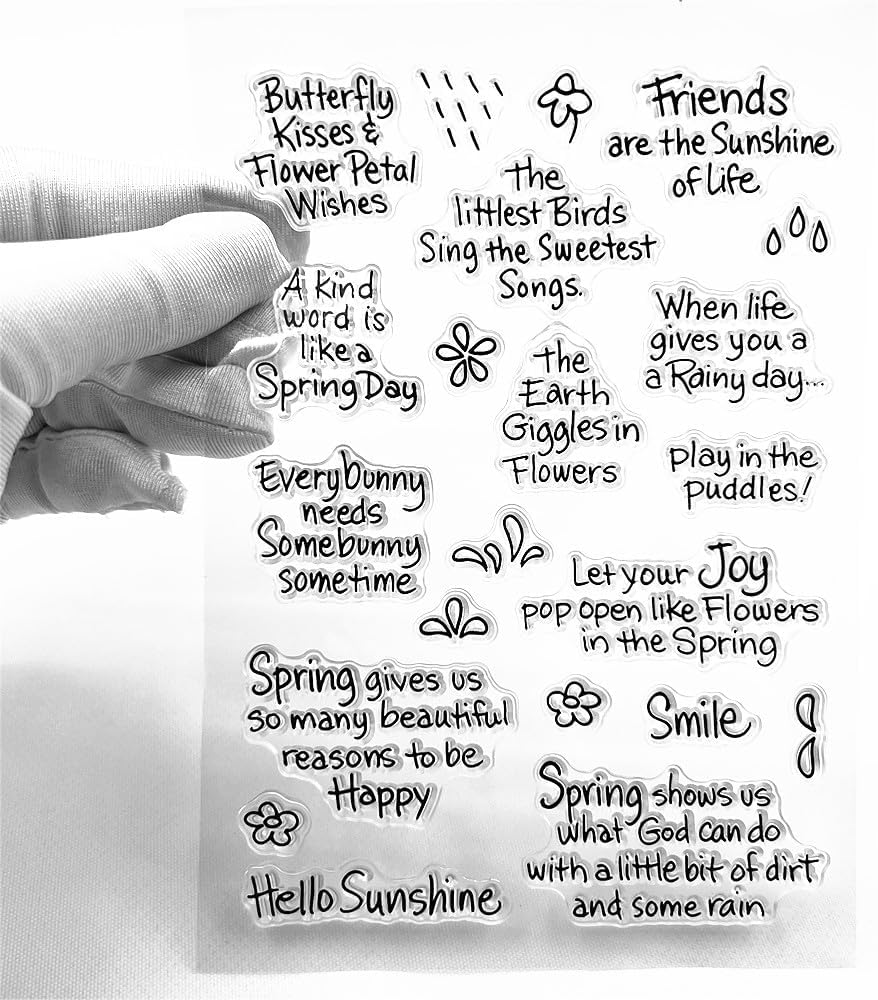 Butterfly
Kisses &
Flower Petal
Wishes
Friends
are the Sunshine
of life
The
littlest Birds
Sing the Sweetest
Songs.
A kind
word is
like a
Spring Day
When life
gives you a
a Rainy day...
the
Earth
Giggles in
Flowers
play in the
puddles!
Everybunny
needs
Somebunny
sometime
Let your Joy
pop open like Flowers
in the Spring
Spring gives us
so many beautiful
reasons to be
Happy
Smile
Spring shows us
what God can do
with a little bit of dirt
and some rain
Hello Sunshine